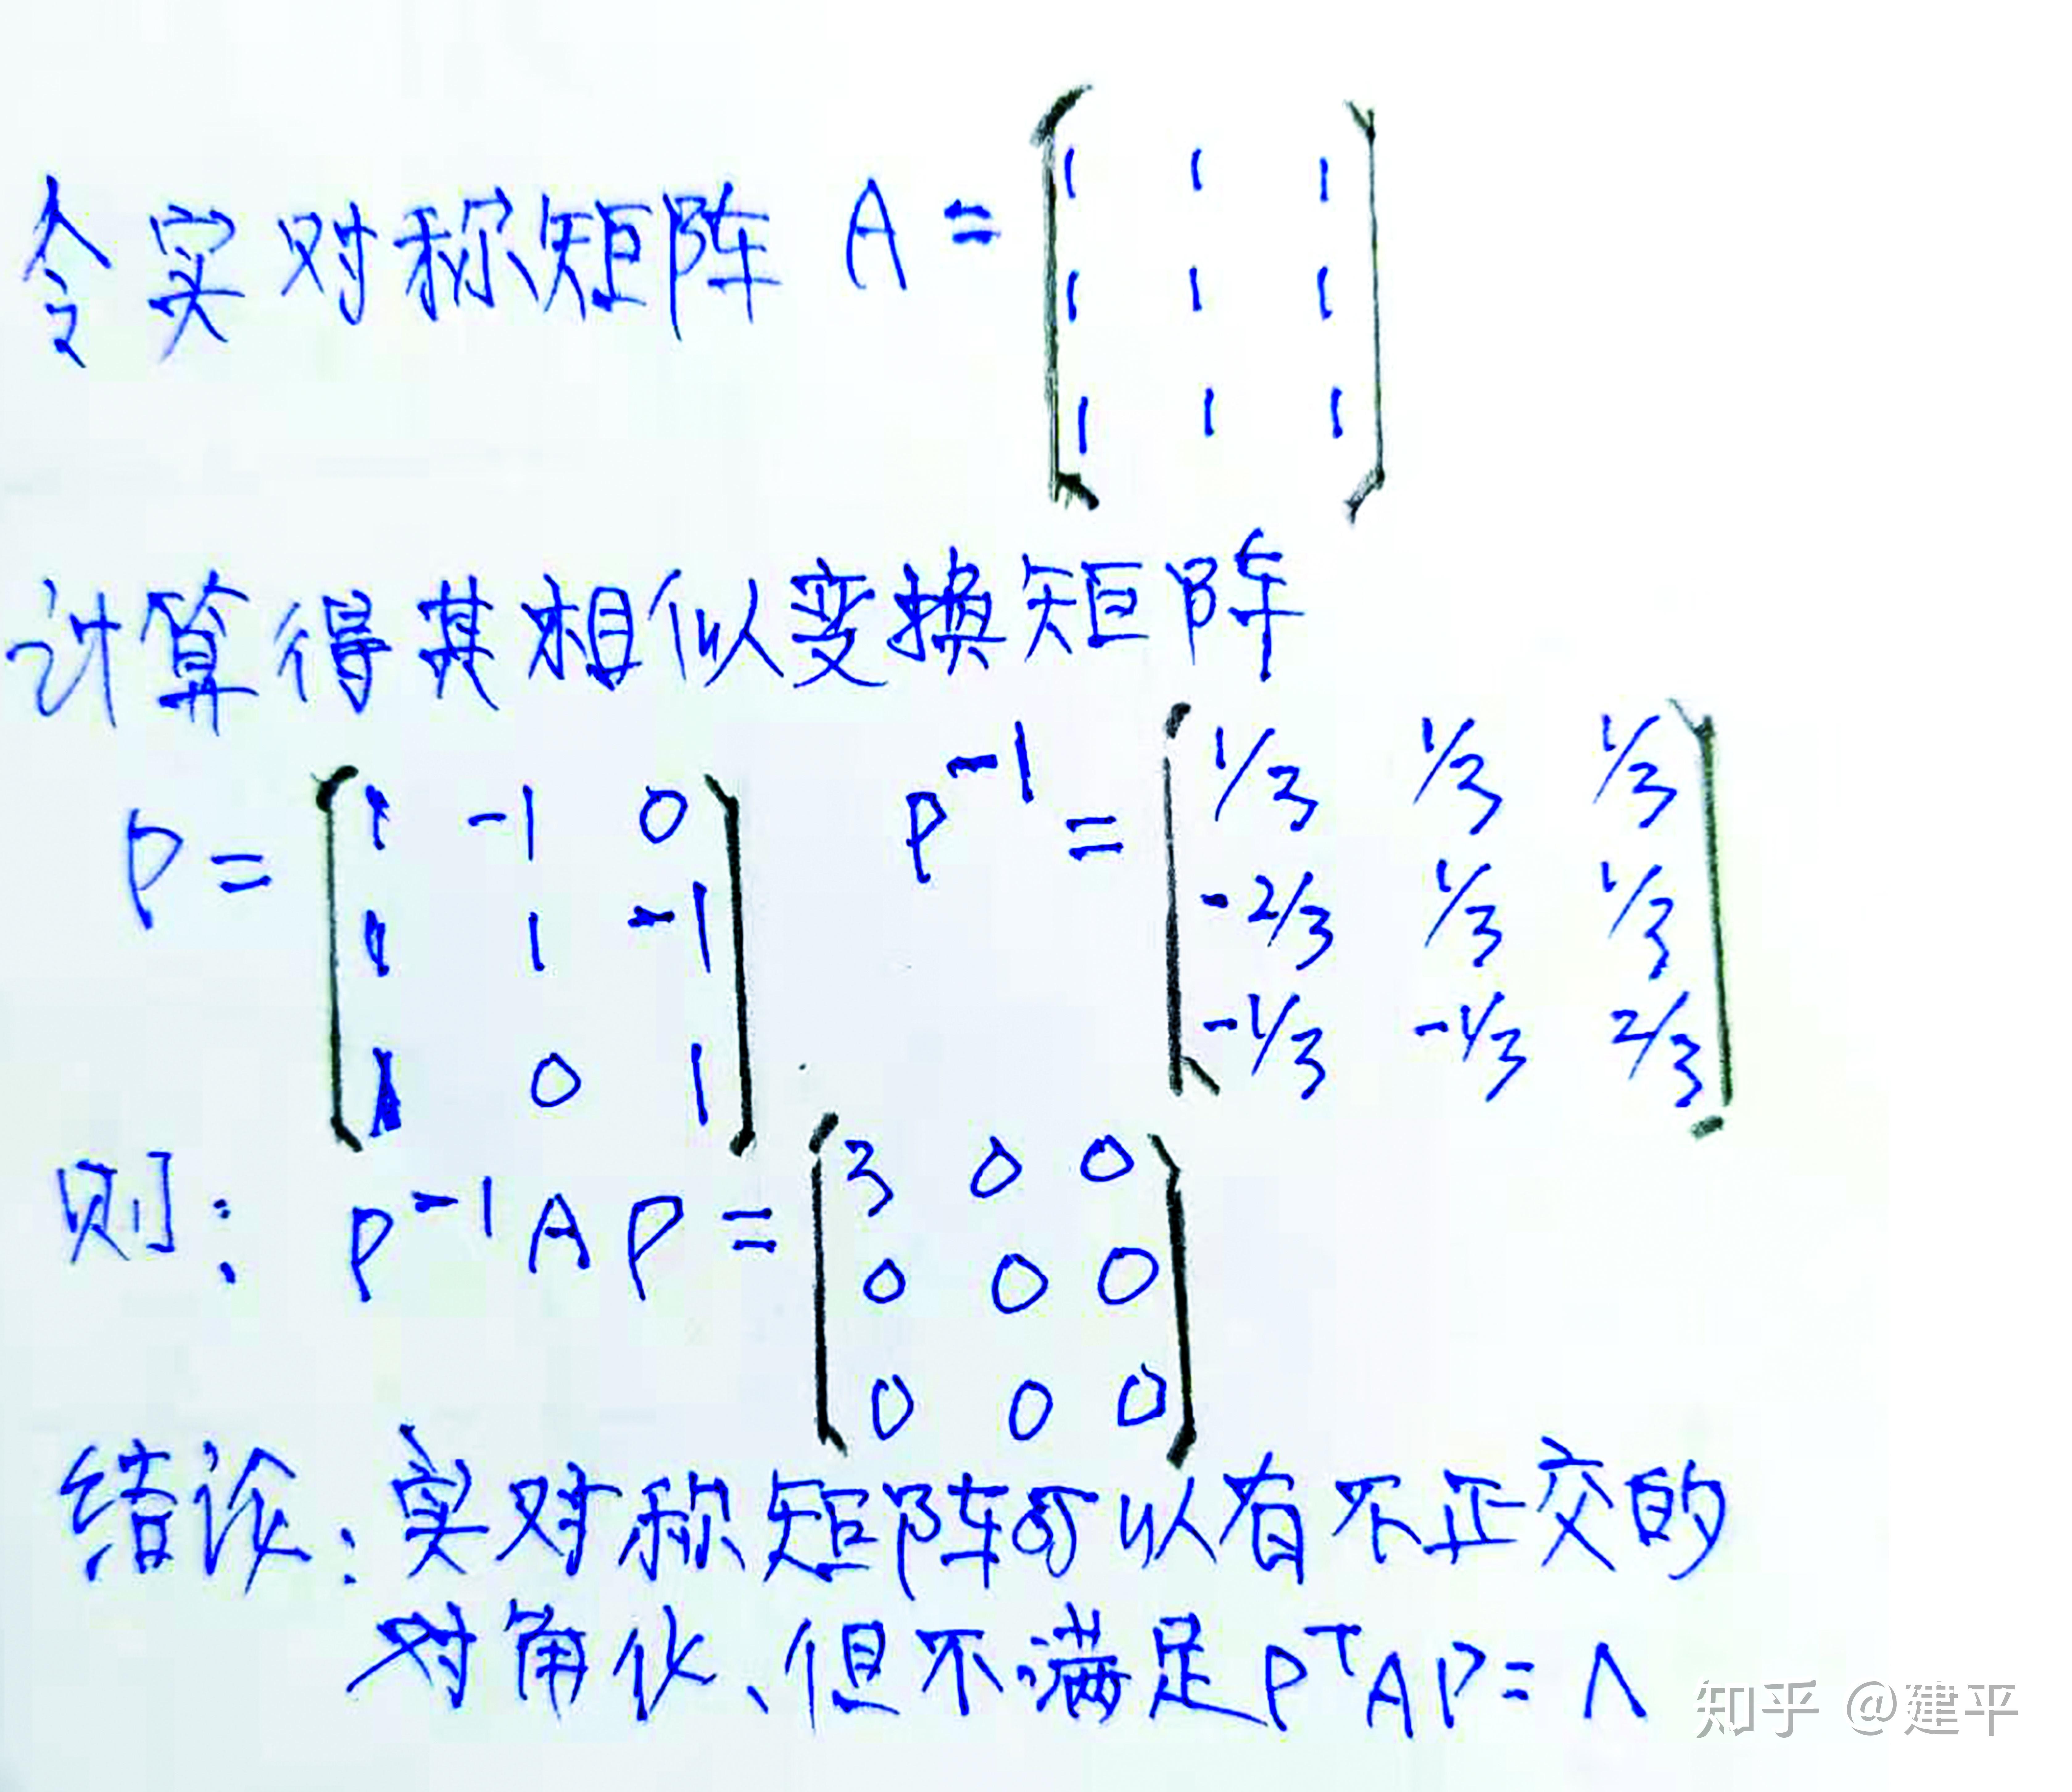 令实对称矩阵 A = [1 1 1
1 1 1
1 1 1]
计算得其相似变换矩阵
P = [1 -1 0
1 1 -1
1 0 1]
P⁻¹ = [1/3 1/3 1/3
-2/3 1/3 1/3
-1/3 -1/3 2/3]
则: P⁻¹AP = [3 0 0
0 0 0
0 0 0]
结论: 实对称矩阵可以有不正交的
对角化、但不满足PᵀAP=Λ
知乎 @建平